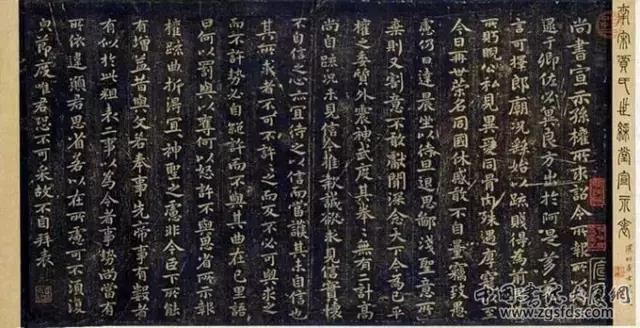 南宋賈氏世綵堂宣示表
尚書宣示孫權所求詔令所報所以博示
逮于卿佐必冀良方出於阿是芻蕘之
言可擇郎廟況繇始以疏賤得為前恩橫
所盱睨公私見異愛同骨肉殊遇厚寵以至
今日再世榮名同國休慼敢不自量竊致愚
慮仍日達晨坐以待旦退思鄙淺聖意所
棄則又割意不敢獻聞深念天下今為已平
權之委質外震神武度其拳拳無有二計高
尚自疏況未見信今推款誠欲求見信實懷
不自信之心亦宜待之以信而當護其未自信也
其所求者不可不許許之而反不必可與求之
而不許勢必自絕許而不與其曲在己里語
曰何以罰與以奪何以怒許不與思省所示報
權疏曲折得宜宜神聖之慮非今臣下所能
有增益昔與文若奉事先帝事有數者
有似於此粗表二事以為今者事勢尚當有
所依違願君思省若以在所慮可不須復
貌節度唯君恐不可采故不自拜表
中国书法发展网
www.zgsfds.com